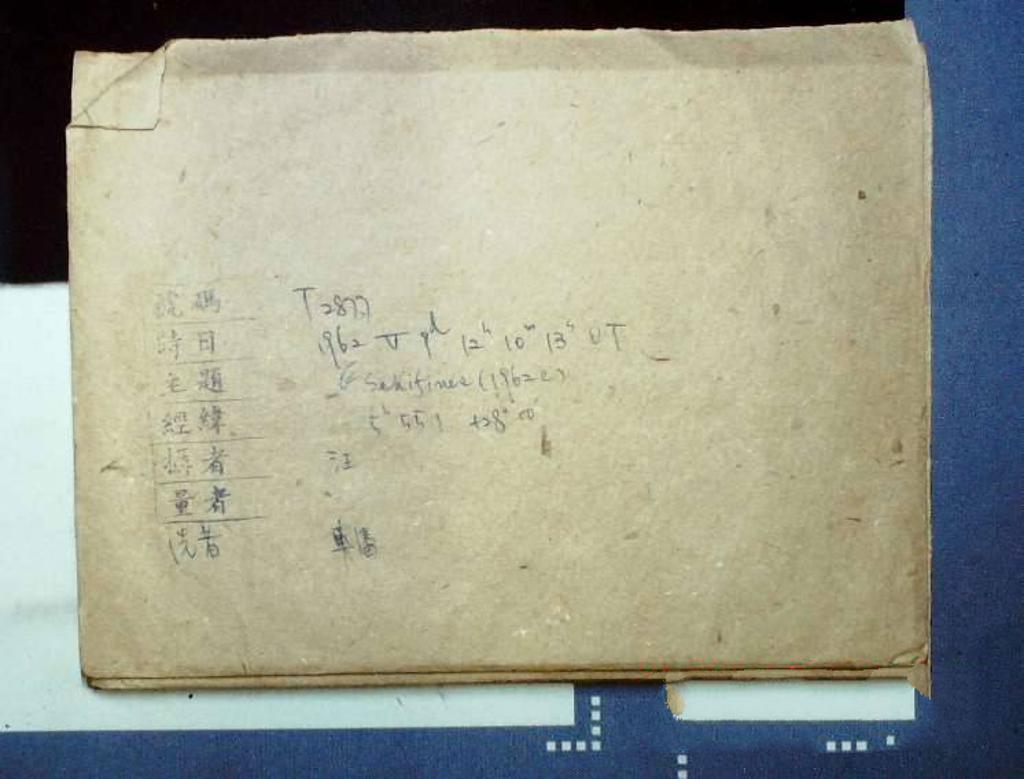 號碼 T 2877
時日 1962 V 9ᵈ 12ʰ 10ᵐ 13ˢ UT
主題 Seki-Lines (1962 c)
經緯 5ʰ 55.1 +28° 00
攝者 汪
量者
洗者